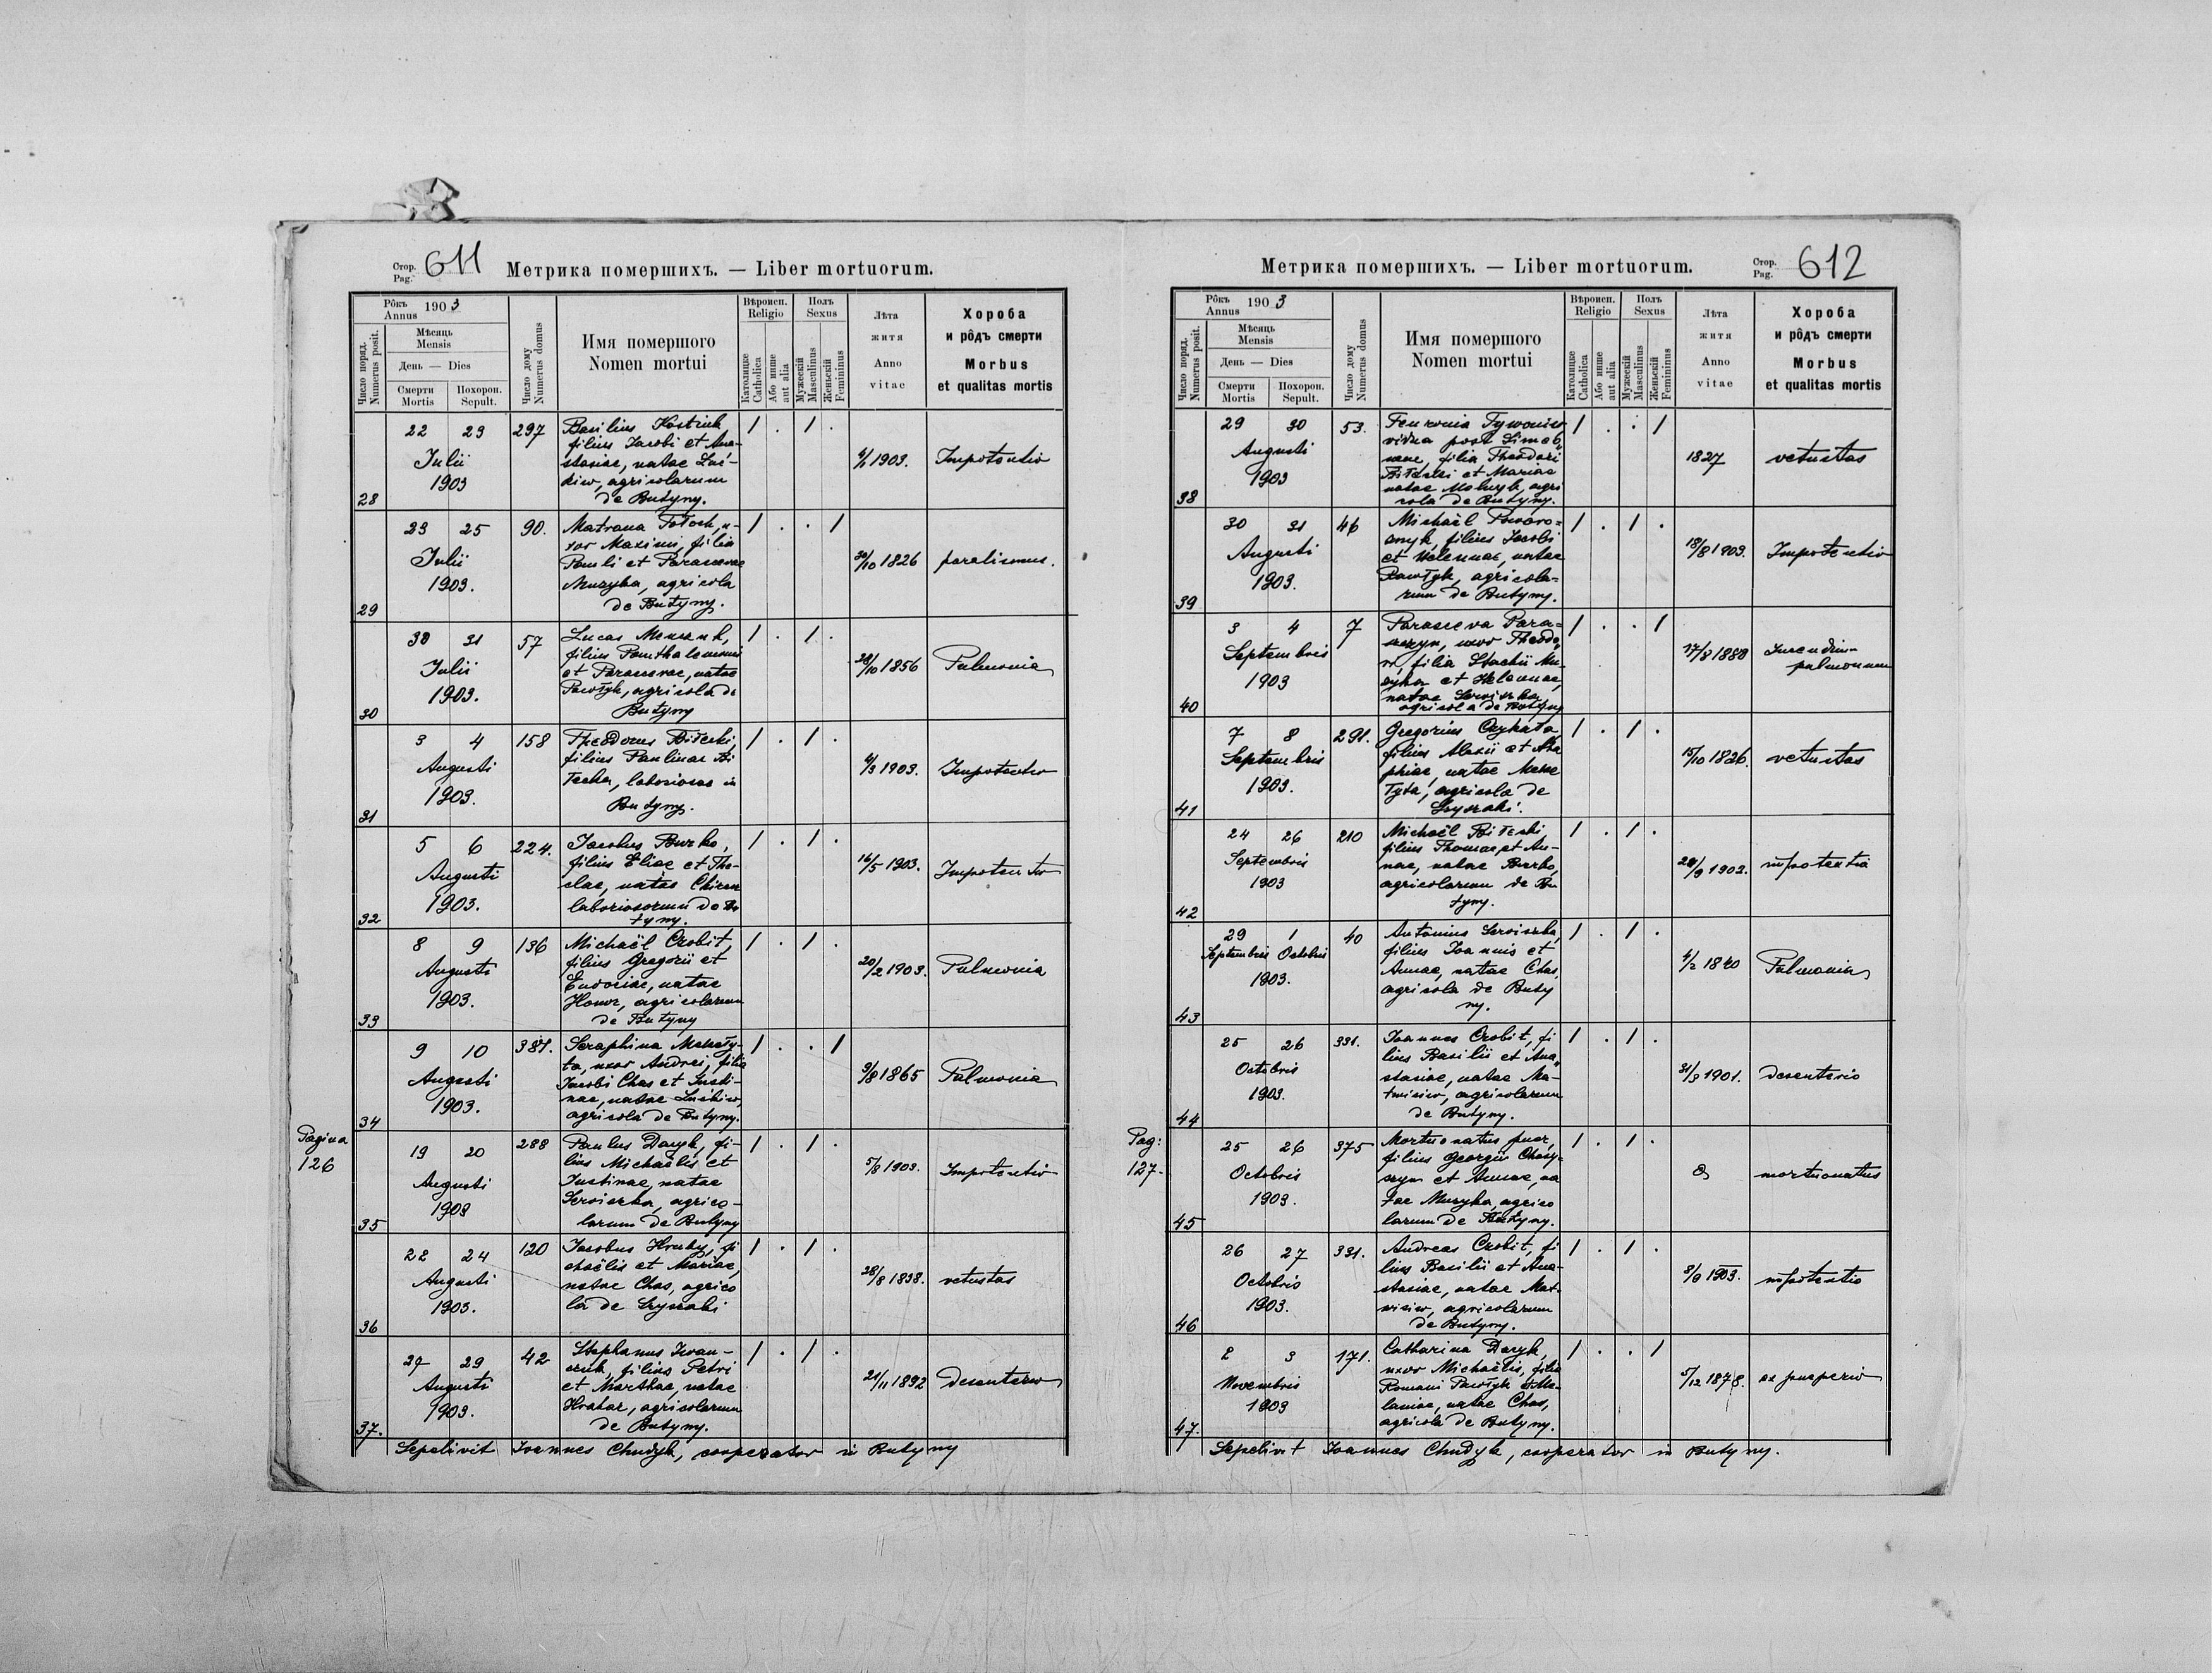 Стор.
Pag. 611
Метрика помершихъ. — Liber mortuorum.
Рôкъ
Annus 1903
Мѣсяць
Mensis
День — Dies
Смерти
Mortis
Похорон.
Sepult.
Число поряд.
Numerus posit.
Число дому
Numerus domus
Имя помершого
Nomen mortui
Вѣроисп.
Religio
Католицке
Catholica
Або инше
aut alia
Полъ
Sexus
Мужескій
Masculinus
Женьскій
Femininus
Лѣта
житя
Anno
vitae
Хороба
и рôдъ смерти
Morbus
et qualitas mortis
28
22 23
Julii
1903
297
Basilius
filius Jacobi et Ana-
stasiae, natae
agricolarum
de Butyny.
1 . 1 .
1903.
Impotentia
29
23 25
Julii
1903.
90.
Matrona u-
xor Maximi, filia
Pauli et Parascevae
Muzyka, agricola
de Butyny.
1 . . 1
30/10 1826
paralismus.
30
30 31
Julii
1903.
57
Lucas
filius
et Parascevae, natae
Pawłyk, agricola de
Butyny
1 . 1 .
28/10 1856
Pulmonia
31
3 4
Augusti
1903.
158
Theodorus Biłecki,
filius Paulinae Bi
łecka, laboriosae in
Butyny.
1 . 1 .
1903.
Impotentia
32
5 6
Augusti
1903.
224.
Jacobus Burko,
filius Eliae et The-
clae, natae
laboriosorum de Bu
tyny.
1 . 1 .
16/5 1903.
Impotentia
33
8 9
Augusti
1903.
136
Michaël Czobit,
filius Gregorii et
Eudociae, natae
agricolarum
de Butyny
1 . 1 .
20/2 1903.
Pulmonia
34
9 10
Augusti
1903.
381.
Seraphina Mekeły-
ta, uxor Andrei, filia
Jacobi Chas et Justi-
nae, natae
agricola de Butyny.
1 . . 1
9/8 1865
Pulmonia
Pagina
126
35
19 20
Augusti
1903
288
Paulus Dacyk, fi-
lius Michaëlis et
Justinae, natae
Serviszka, agrico-
larum de Butyny
1 . 1 .
5/8 1903.
Impotentia
36
22 24
Augusti
1903.
120
Jacobus Hruby,
chaëlis et Mariae,
natae Chas, agrico
la de
1 . 1 .
28/8 1838.
vetustas
37.
27 29
Augusti
1903.
42
Stephanus Iwan-
czuk, filius Petri
et Marthae, natae
agricolarum
de Butyny.
1 . 1 .
21/11 1892
Desenteria
Sepelivit Joannes Chudyk, cooperator in Butyny
Метрика помершихъ. — Liber mortuorum.
Стор.
Pag. 612
Рôкъ
Annus 1903
Мѣсяць
Mensis
День — Dies
Смерти
Mortis
Похорон.
Sepult.
Число поряд.
Numerus posit.
Число дому
Numerus domus
Имя помершого
Nomen mortui
Вѣроисп.
Religio
Католицке
Catholica
Або инше
aut alia
Полъ
Sexus
Мужескій
Masculinus
Женьскій
Femininus
Лѣта
житя
Anno
vitae
Хороба
и рôдъ смерти
Morbus
et qualitas mortis
38
29 30
Augusti
1903
53.
vidua post
filia Theodori
Biłecki et Mariae
natae agri
cola de Butyny.
1 . . 1
1827
vetustas
39
30 31
Augusti
1903.
46
Michaël
filius Jacobi
et Helennae, natae
Pawłyk, agricola-
rum de Butyny.
1 . 1 .
1903.
Impotentia
40
3 4
Septembris
1903
7
Parasceva
uxor Theodo
ri, filia Stachii Mu-
zyka et Helennae,
natae Serviszka
agricola de Butyny
1 . . 1
17/8 1880
pulmonum
41
7 8
Septembris
1903.
291.
Gregorius
filius Alexii et
natae Meke
łyta, agricola de
1 . 1 .
15/10 1826.
vetustas
42
24 26
Septembris
1903
210
Michaël Biłecki
filius Thomae et An-
nae, natae Burko,
agricolarum de Bu
tyny.
1 . 1 .
1902.
impotentia
43
29 1
Septembris Octobris
1903.
40
Antonius Serviszka,
filius Joannis et
Annae, natae Chas,
agricola de Buty
ny.
1 . 1 .
1840
Pulmonia
44
25 26
Octobris
1903.
331.
Joannes Czobit, fi
lius Basilii et Ana
stasiae, natae Ma-
twiciw, agricolarum
de Butyny.
1 . 1 .
1901.
desenteria
Pag:
127.
45
25 26
Octobris
1903.
375
Mortuonatus puer,
filius Georgii
et Annae, na
tae Muzyka, agrico
larum de Butyny.
1 . 1 .
mortuonatus
46
26 27
Octobris
1903.
331.
Andreas Czobit, fi
lius Basilii et Ana-
stasiae, natae Mat-
wiciw, agricolarum
de Butyny.
1 . 1 .
8/9 1903.
impotentia
47.
2 3
Novembris
1903
171.
Catharina Dacyk,
uxor Michaëlis, filia
Romani Pawłyk et Me-
laniae, natae Chas,
agricola de Butyny.
1 . . 1
5/12 1878.
ex puerperio
Sepelivit Joannes Chudyk, cooperator in Butyny.